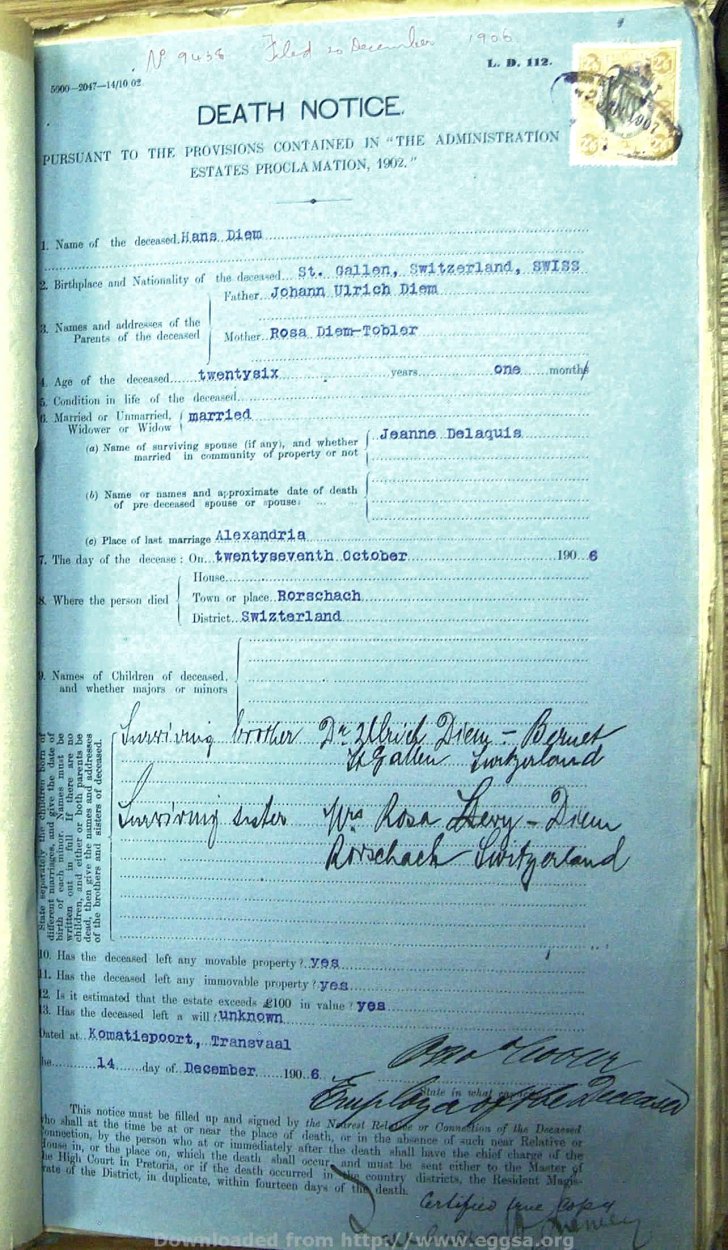 No 9438 Filed 20 December 1906
L. D. 112.
5000—2047—14/10 02
DEATH NOTICE.
PURSUANT TO THE PROVISIONS CONTAINED IN "THE ADMINISTRATION
ESTATES PROCLAMATION, 1902."
1. Name of the deceased Hans Diem
2. Birthplace and Nationality of the deceased St. Gallen, Switzerland, SWISS
Father Johann Ulrich Diem
3. Names and addresses of the
Parents of the deceased
Mother Rosa Diem-Tobler
4. Age of the deceased twentysix years one months
5. Condition in life of the deceased
6. Married or Unmarried, married
Widower or Widow
(a) Name of surviving spouse (if any), and whether Jeanne Delaquis
married in community of property or not
(b) Name or names and approximate date of death
of pre-deceased spouse or spouses
(c) Place of last marriage Alexandria
7. The day of the decease: On twentyseventh October 190 6
House
8. Where the person died Town or place Rorschach
District Swizterland
9. Names of Children of deceased,
and whether majors or minors
State separately the children born of
different marriages, and give the date of
birth of each minor. Names must be
written out in full. If there are no
children, and either or both parents be
dead, then give the names and addresses
of the brothers and sisters of deceased.
Surviving brother Dr. Ulrich Diem - Bernet
St Gallen Switzerland
Surviving sister Mrs Rosa - Diem
Rorschach Switzerland
10. Has the deceased left any movable property? yes
11. Has the deceased left any immovable property? yes
12. Is it estimated that the estate exceeds £100 in value? yes
13. Has the deceased left a will? unknown
Dated at Komatiepoort, Transvaal
he 14 day of December 190 6
State in what
of the Deceased
This notice must be filled up and signed by the Nearest Relative or Connection of the Deceased
who shall at the time be at or near the place of death, or in the absence of such near Relative or
Connection, by the person who at or immediately after the death shall have the chief charge of the
House in, or the place on, which the death shall occur, and must be sent either to the Master of
the High Court in Pretoria, or if the death occurred in the country districts, the Resident Magis-
rate of the District, in duplicate, within fourteen days of the death.
Certified true Copy
Downloaded from http://www.eggsa.org